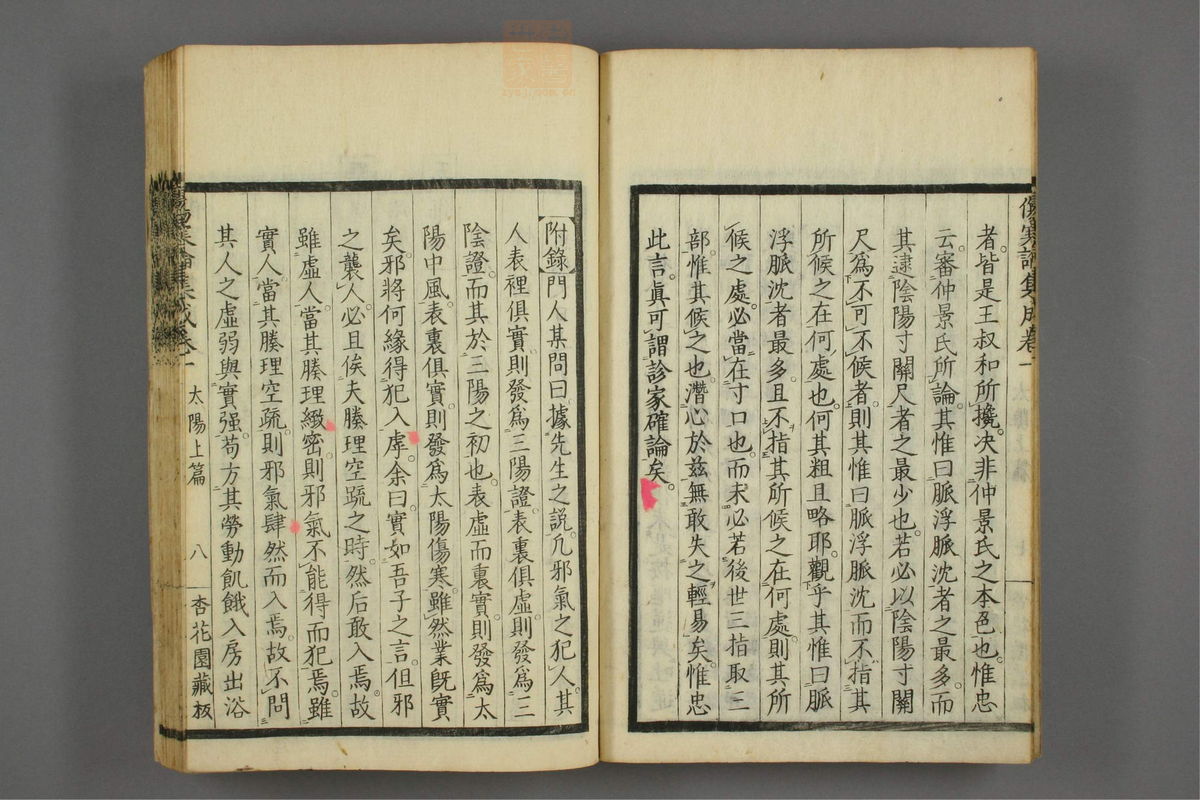 者皆是王叔和所攙决非仲景氏之本色也惟忠
云審仲景氏所論其惟曰脈浮脈沈者之最多而
其逮陰陽寸關尺者之最少也若必以陰陽寸關
尺爲不可不候者則其惟曰脈浮脈沈而不指其
所候之在何處也何其粗且略耶觀乎其惟曰脈
浮脈沈者最多且不指其所候之在何處則其所
候之處必當在寸口也而未必若後世三指取三
部惟其候之也潛心於茲無敢失之輕易矣惟忠
此言眞可謂診家確論矣
傷寒論集成卷一
附錄門人某問曰據先生之説凡邪氣之犯人其
人表裡俱實則發爲三陽證表裏俱虛則發爲三
陰證而其於三陽之初也表虛而裏實則發爲太
陽中風表裏俱實則發爲太陽傷寒雖然業旣實
矣邪將何緣得犯入虖余曰實如吾子之言但邪
之襲人必且俟夫腠理空疏之時然后敢入焉故
雖虛人當其腠理緻密則邪氣不能得而犯焉雖
實人當其腠理空疏則邪氣肆然而入焉故不問
其人之虛弱與實强苟方其勞動飢餓入房出浴
太陽上篇 八 杏花園藏板